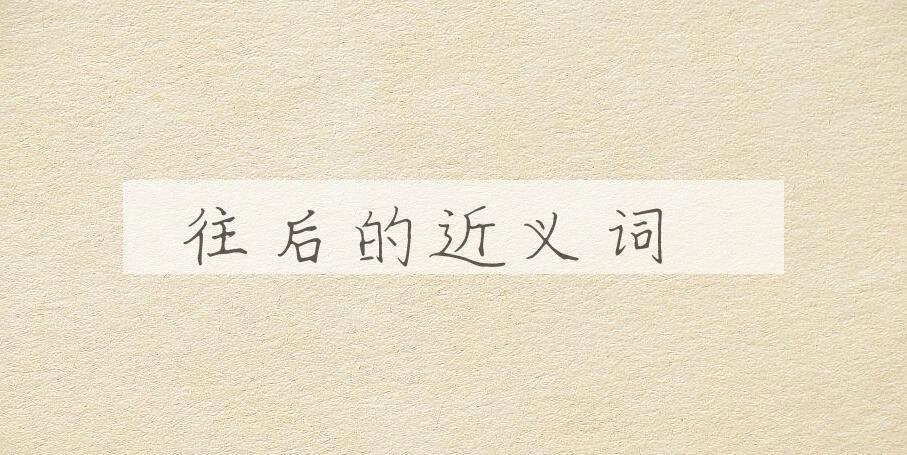 往后的近义词